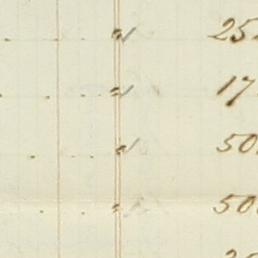 " 25
" 17
" 50
" 50